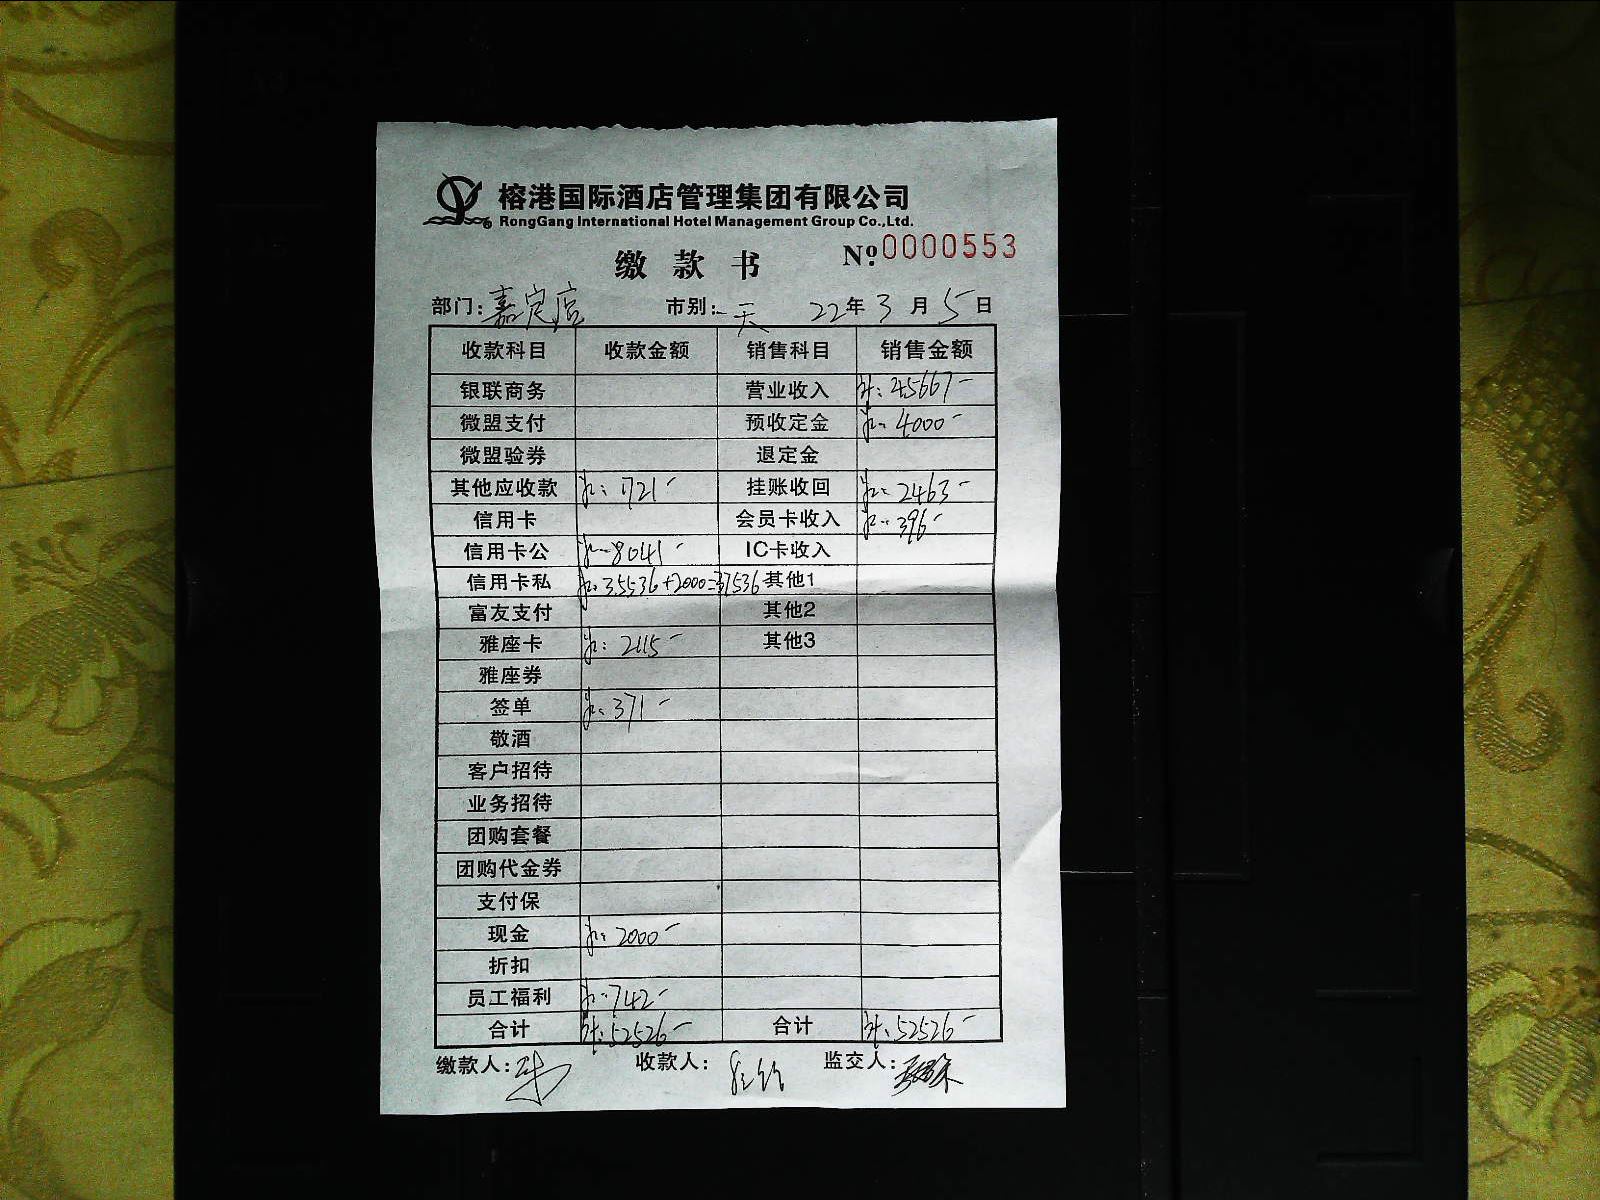 榕港国际酒店管理集团有限公司
RongGang International Hotel Management Group Co.,Ltd.
缴款书 №0000553
部门:嘉定店 市别:一天 22年3月5日
收款科目 收款金额 销售科目 销售金额
银联商务 营业收入 计:45667-
微盟支付 预收定金 计:4000-
微盟验券 退定金
其他应收款 计:1721- 挂账收回 计:2463-
信用卡 会员卡收入 计:396-
信用卡公 计:8041- IC卡收入
信用卡私 计:35536+2000=37536 其他1
富友支付 其他2
雅座卡 计:2115- 其他3
雅座券
签单 计:371-
敬酒
客户招待
业务招待
团购套餐
团购代金券
支付保
现金 计:2000-
折扣
员工福利 计:742-
合计 计:52526- 合计 计:52526-
缴款人: 收款人: 监交人: